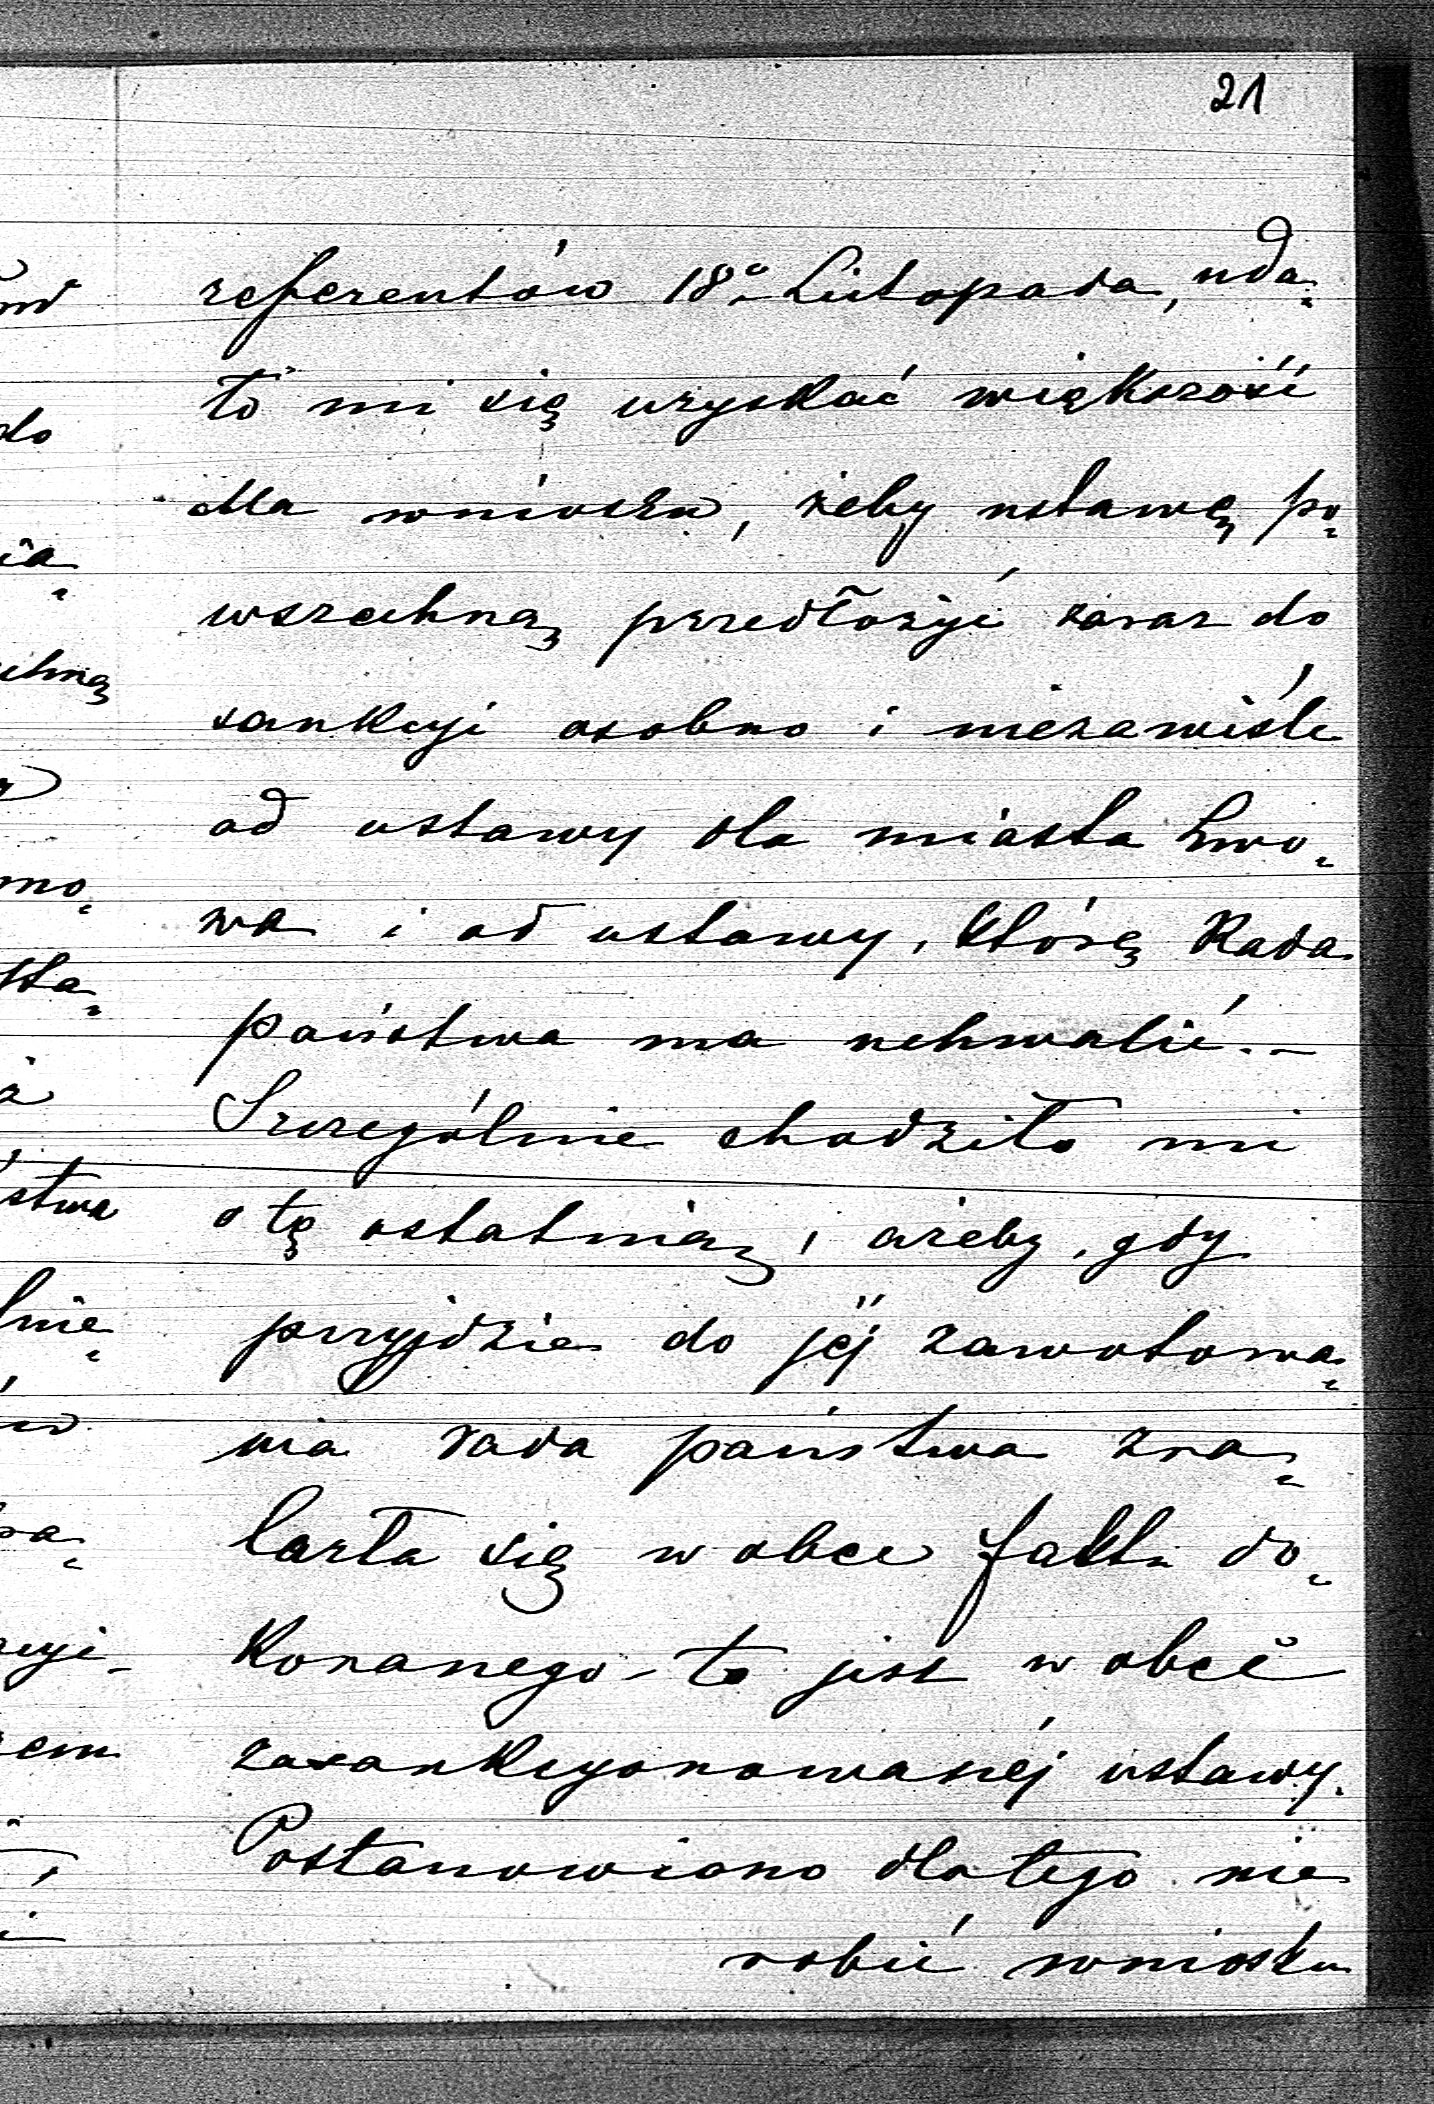 21
referentów 18º Listopada, uda-
ło mi się uzyskać większość
dla wniosku, żeby ustawę po-
wszechną przedłożyć zaraz do
sankcyi osobno i niezawiśle
od ustawy dla miasta Lwo-
wa i od ustawy, którą Rada
państwa ma uchwalić. –
Szczególnie chodziło mi
o tę ostatnią, ażeby, gdy
przyjdzie do jéj zawotowa-
nia rada państwa zna-
lazła się w obec faktu do-
konanego – to jest w obec
zasankcyonowanéj ustawy.
Postanowiono dlatego nie
robić wniosku